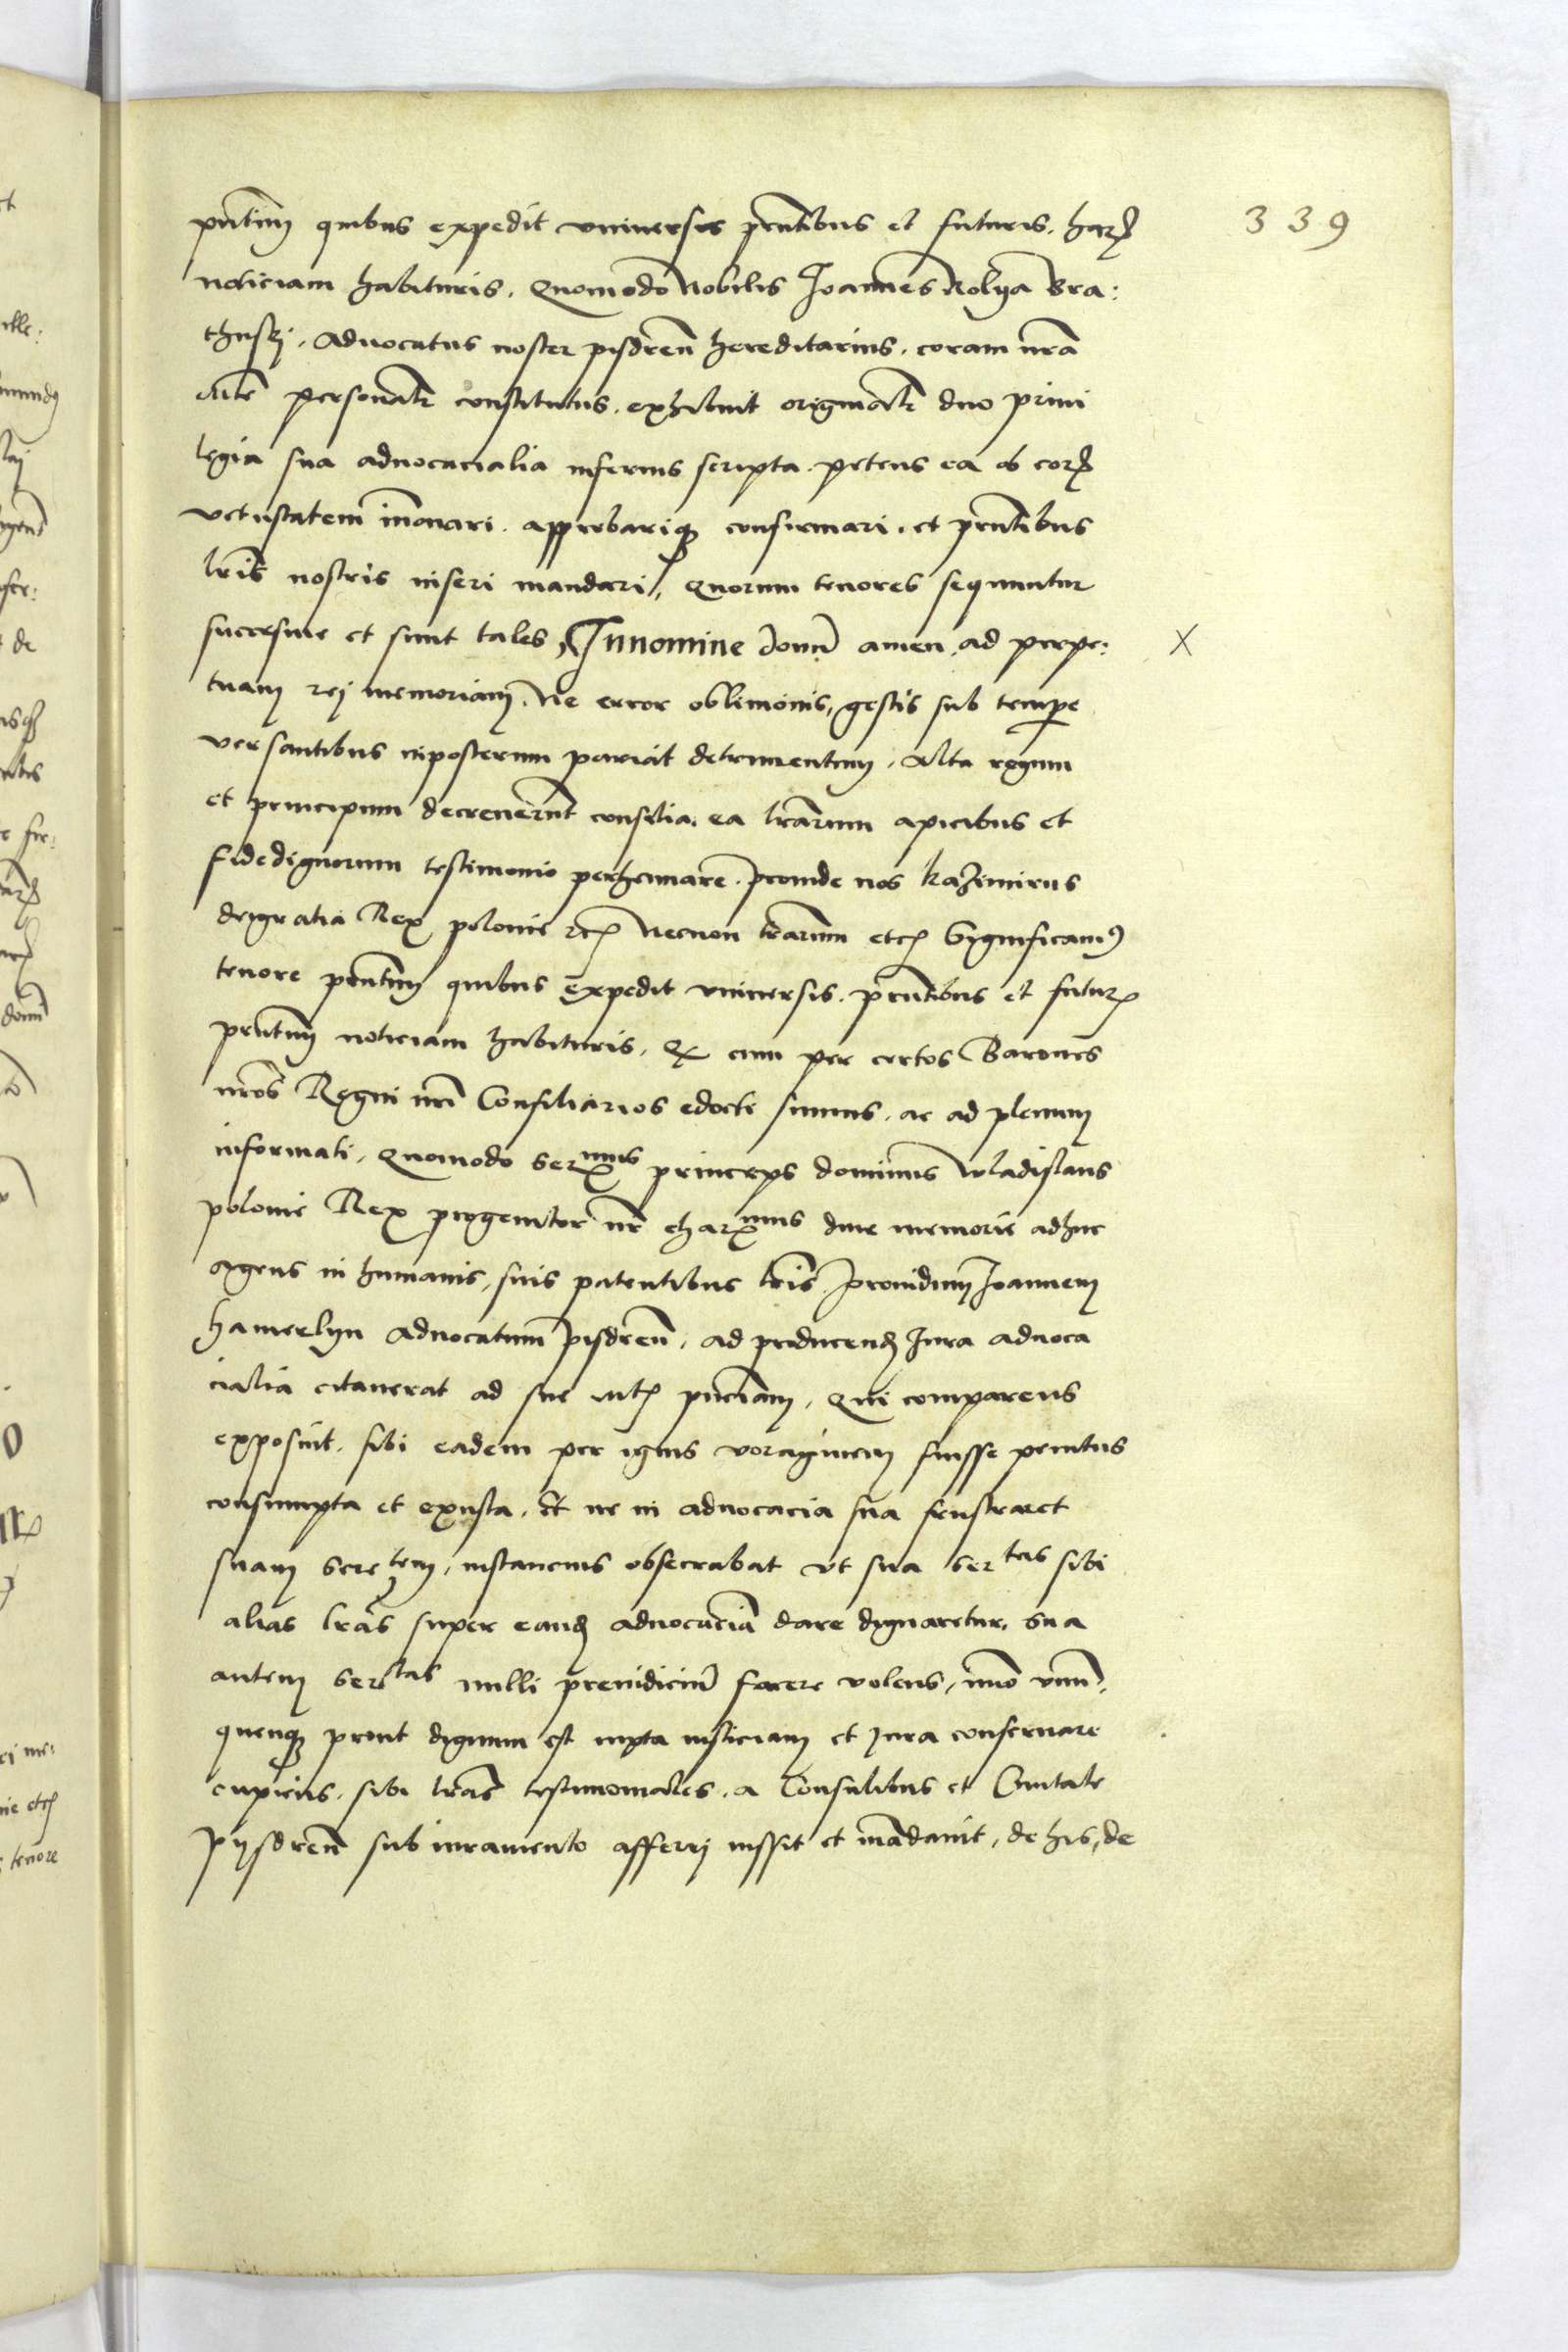 339
pntium quibus expedit vniuersis prntibus et futuris. harz
noticiam habituris. Quomodo Nobilis Joannes Rolya Bra:
thusky. Aduocatus noster pisdren hereditarius. coram nra
Mte personalr constitutus. exhibuit originalr duo priui
legia sua aduocacialia inferius scripta. petens ea ob eorz
vetustatem innouari. approbarique confirmari. et prntibus
lris nostris inseri mandari, Quorum tenores sequuntur
successiue et sunt tales, Innomine domi amen. ad perpe: X
tuam rej memoriam. Ne error obliuionis, gestis sub tempe
versantibus inposterum pariat detrimentum. Alta regum
et principum decreuerunt consilia. ea lrarum apicibus et
fidedignorum testimonio perhennare. Proinde nos Kazimirus
deigratia Rex polonie etc Necnon trarum etc Significamus
tenore prntium quibus expedit vniuersis. prntibus et futur
prntium noticiam habituris. Q cum per certos Barones
nros Regni nri Consiliarios edocti sumus. ac ad plenum
informati. Quomodo serxmus princeps dominus wladislaus
polonie Rex progenitor nr charxmus diue memorie adhuc
agens in humanis, suis patentibus lris Prouidum Joannem
Hamerlyn Aduocatum Pisdren. ad producend Jura aduoca
cialia citauerat ad sue Mtis pnciam. Qui comparens
exposuit. sibi eadem per ignis voraginem fuisse penitus
consumpta et exusta. Et ne in aduocacia sua frustraret
suam Seretem, instancius obsecrabat vt sua sertas sibi
alias lras super eand aduocacia dare dignaretur. Sua
autem sertas nulli preiudicium facere volens, imo vnum
quenque prout dignum est iuxta iusticiam et jura conseruare
cupiens. sibi lras testimoniales. a Consulibus et Ciuitate
Pysdren sub iuramento afferrj iussit et madauit, de his, de